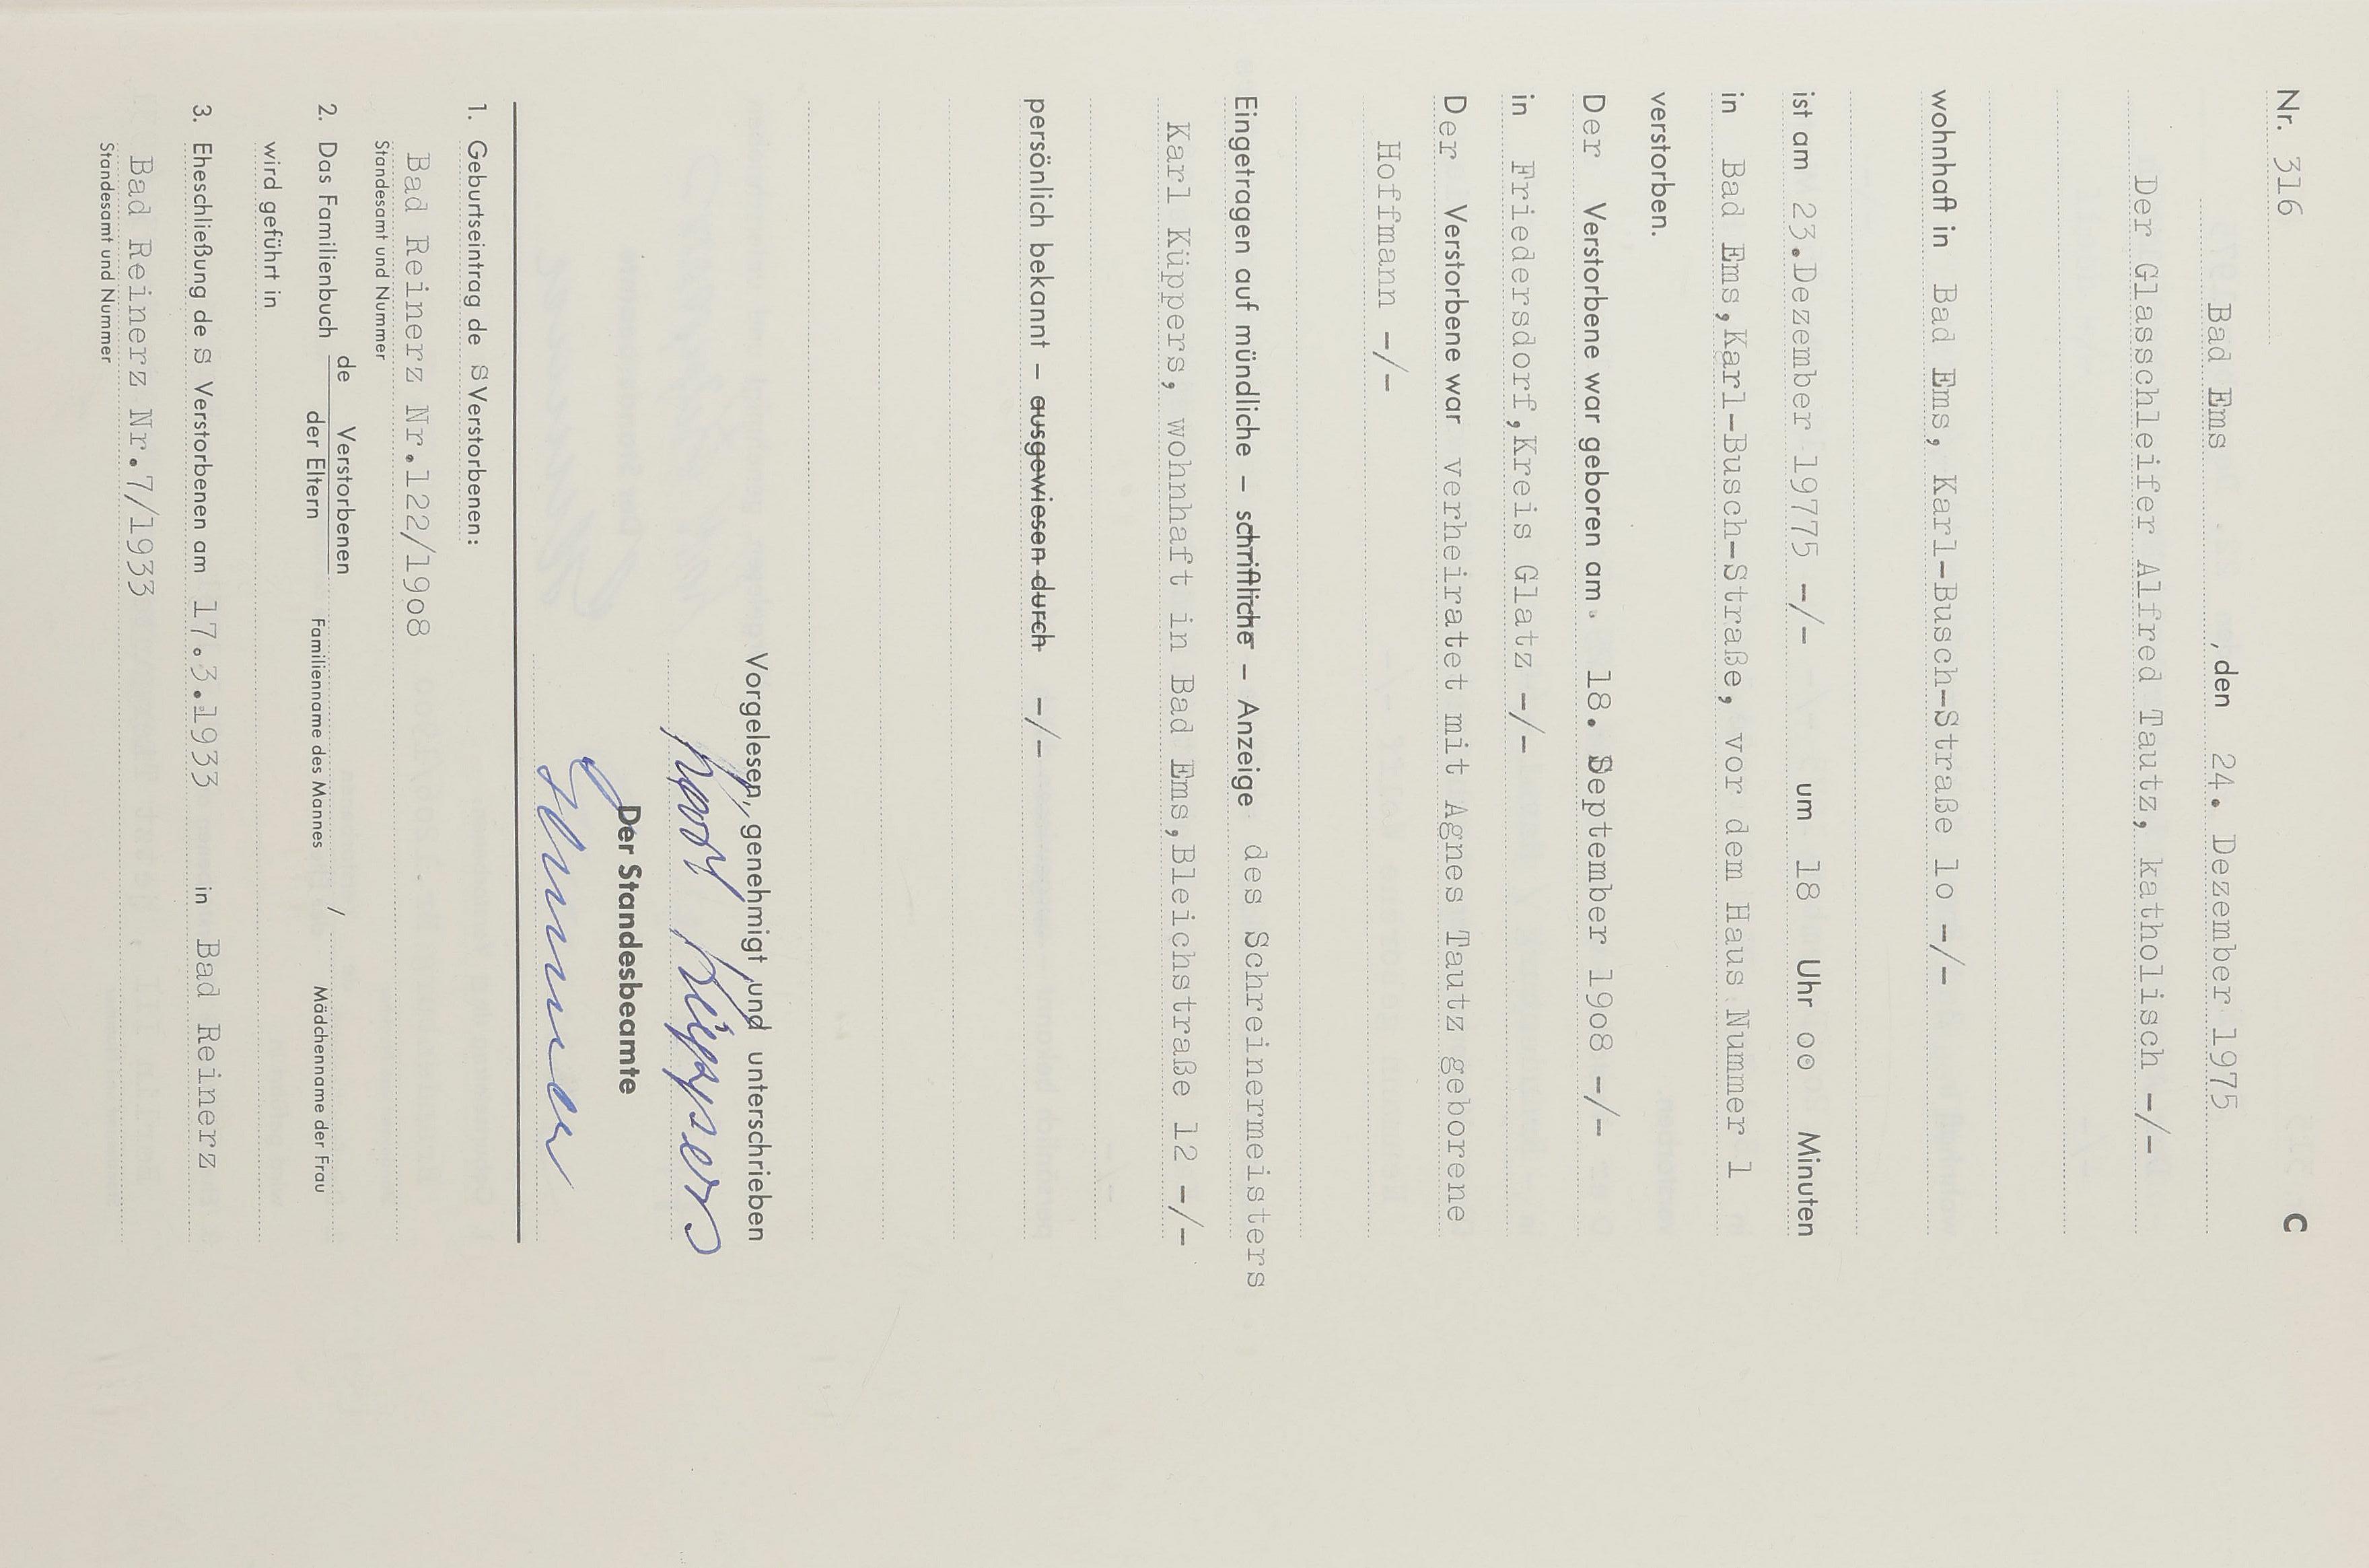 Nr. 316
C
Bad Ems , den 24. Dezember 1975
Der Glasschleifer Alfred Tautz, katholisch -/-
wohnhaft in Bad Ems, Karl-Busch-Straße lo -/-
ist am 23.Dezember 19775 -/- um 18 Uhr oo Minuten
in Bad Ems,Karl-Busch-Straße, vor dem Haus Nummer 1
verstorben.
Der Verstorbene war geboren am 18. September 19o8 -/-
in Friedersdorf,Kreis Glatz -/-
Der Verstorbene war verheiratet mit Agnes Tautz geborene
Hoffmann -/-
Eingetragen auf mündliche – schriftliche – Anzeige des Schreinermeisters
Karl Küppers, wohnhaft in Bad Ems,Bleichstraße 12 -/-
persönlich bekannt – ausgewiesen durch -/-
Vorgelesen, genehmigt und unterschrieben
Karl Küppers
Der Standesbeamte
1. Geburtseintrag de s Verstorbenen:
Bad Reinerz Nr.122/19o8
Standesamt und Nummer
2. Das Familienbuch de Verstorbenen / der Eltern
Familienname des Mannes / Mädchenname der Frau
wird geführt in
3. Eheschließung de s Verstorbenen am 17.3.1933 in Bad Reinerz
Bad Reinerz Nr.7/1933
Standesamt und Nummer